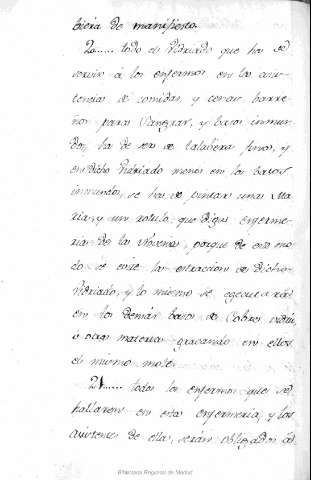 biera de manifiesto.
20..... todo el Vidriado que ha de
servir á los enfermos en las asis-
tencias de comidas, y cenas, barre-
ños para Sangrar, y basos inmun-
dos, ha de ser de talabera fino, y
en dicho Vidriado menos en los basos
inmundos, se ha de pintar una Ma-
ria, y un rotulo, que diga enferme-
ria de las Novenas, porque de este mo-
do se evite la estraccion de dicho
Vidriado, y lo mismo se egecutará
en los demas basos de Cobre, vidrio,
u otras materias gravando en ellos
el mismo mote.
21..... todos los enfermos que se
hallaren en esta enfermeria, y los
asistentes de ella, serán obligados á
Biblioteca Regional de Madrid